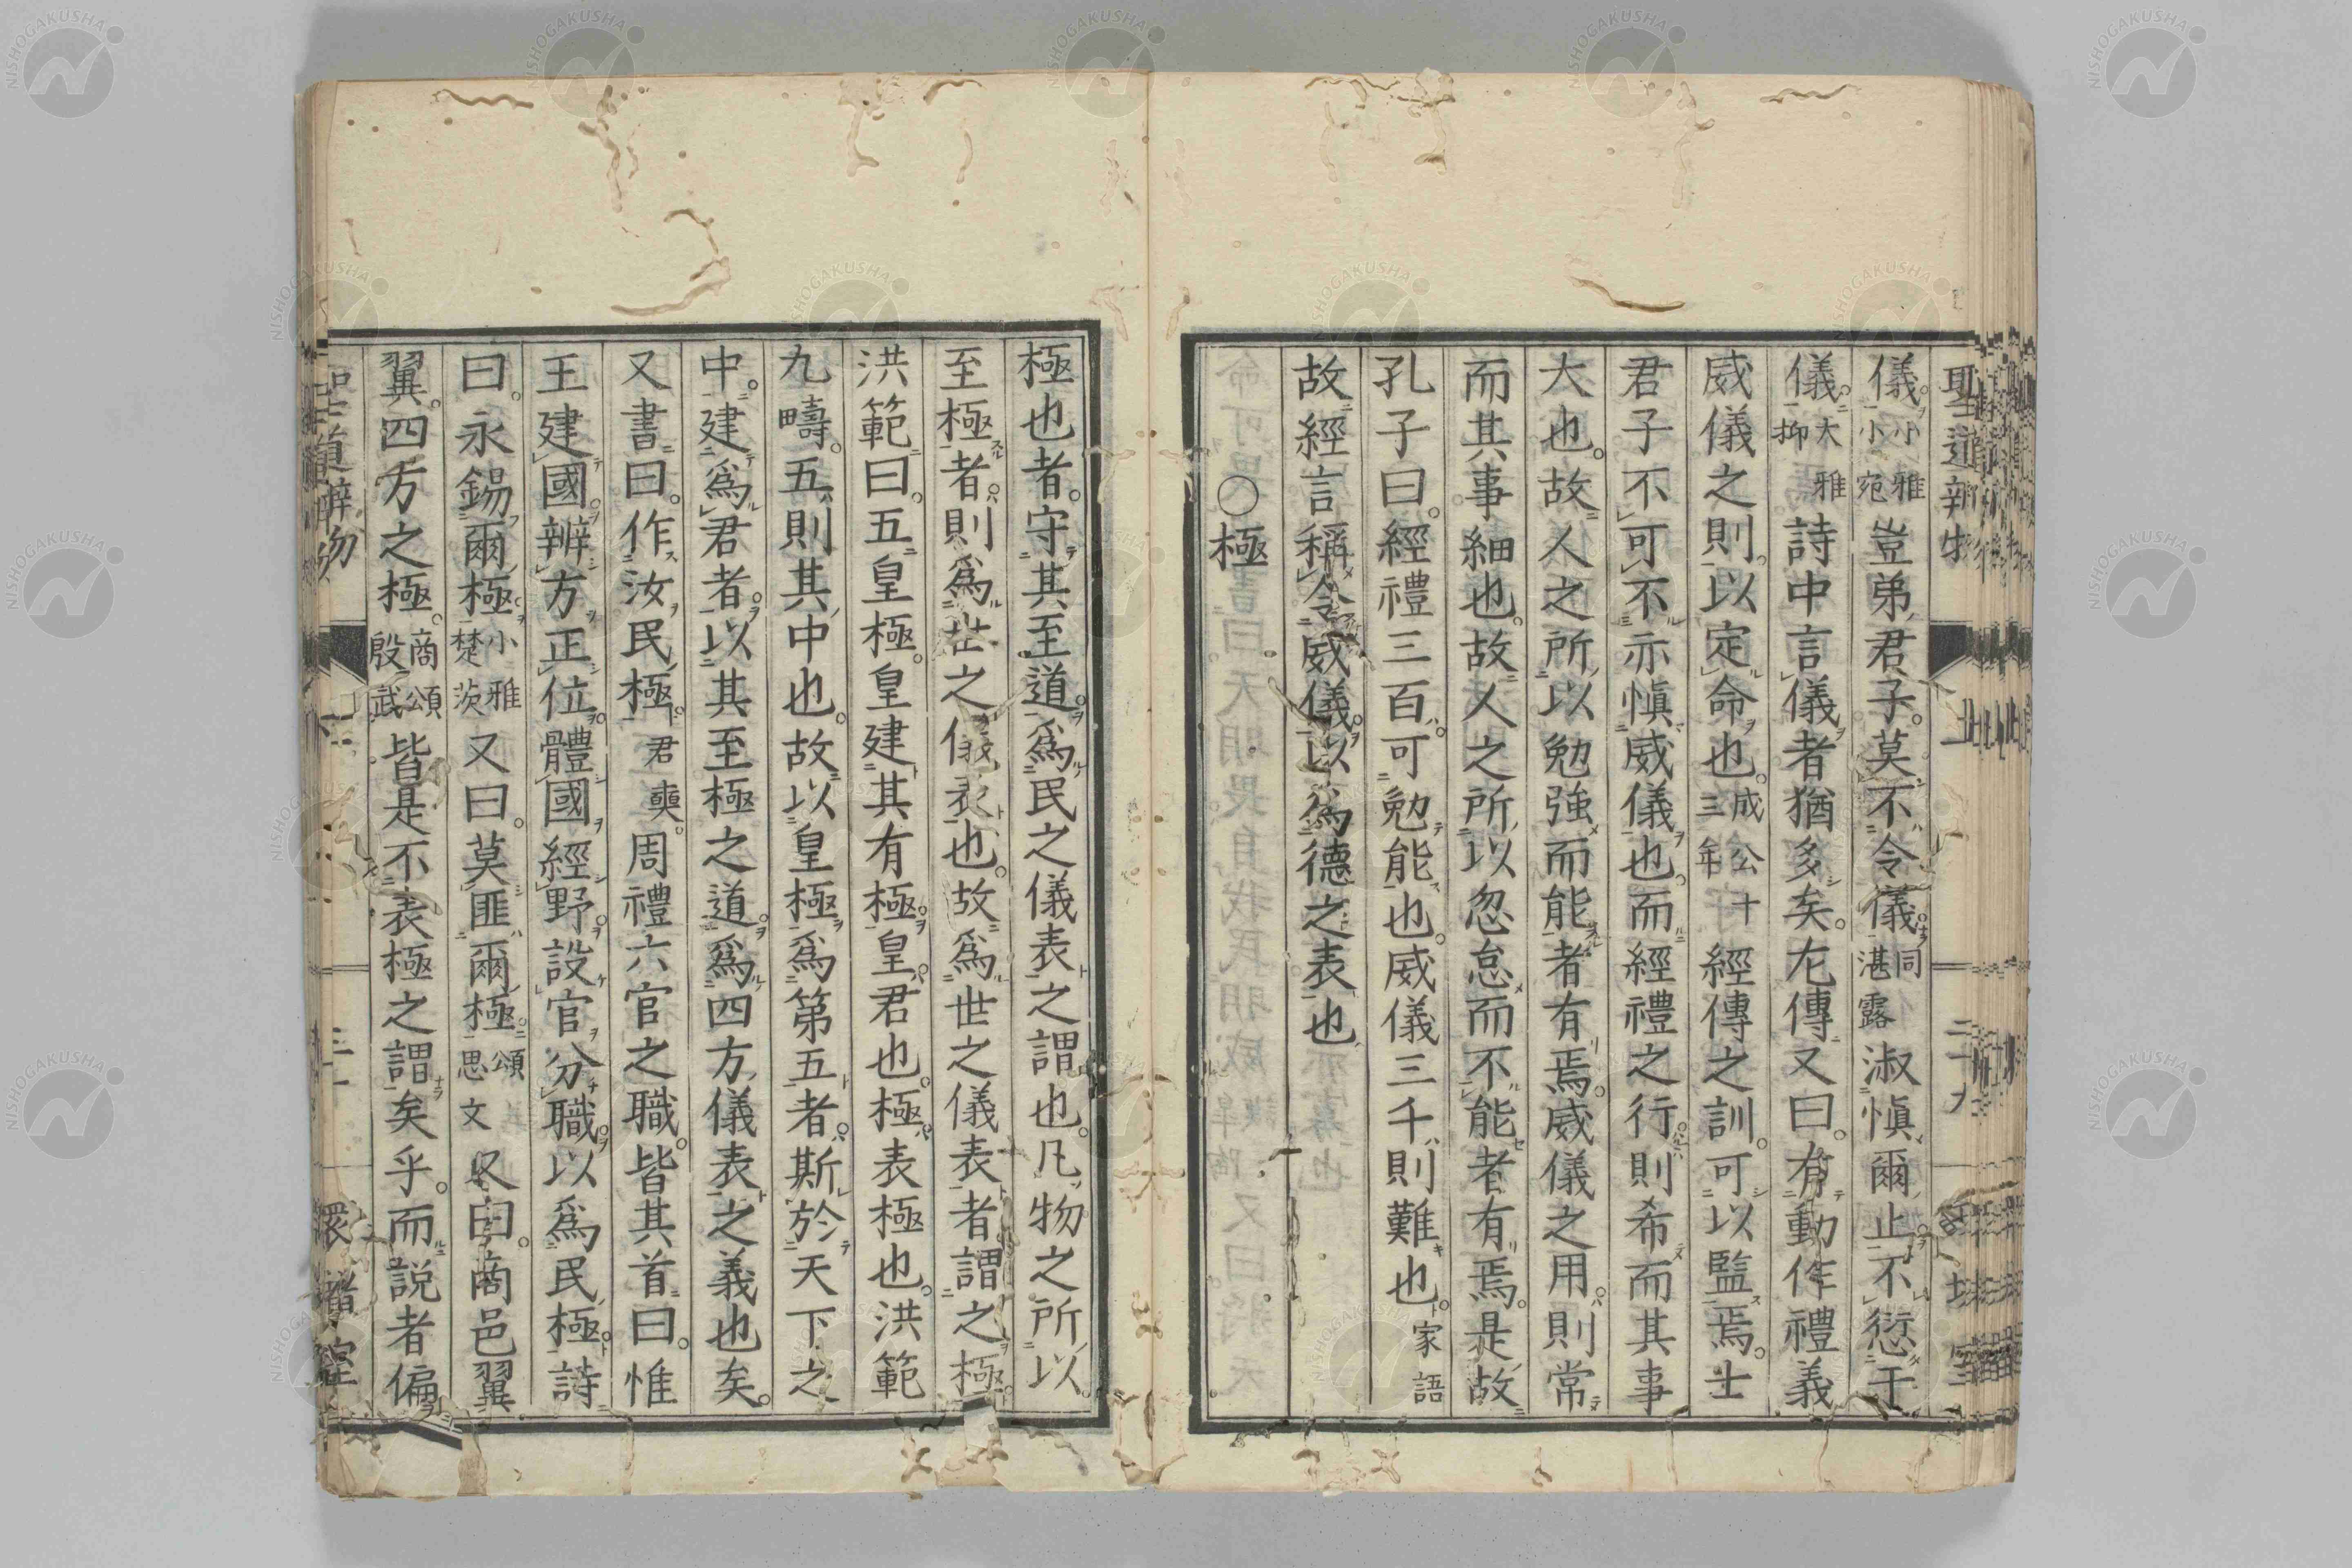 儀。小雅小宛豈弟君子。莫不令儀。同湛露淑愼爾止不愆于
儀。大雅抑詩中言儀者猶多矣。左傳又曰。有動作禮義
威儀之則。以定命也。成公十三年經傳之訓。可以監焉。士
君子不可不亦愼威儀也。而經禮之行。則希而其事
大也。故人之所以勉強而能者有焉。威儀之用。則常
而其事細也。故人之所以忽怠而不能者有焉。是故
孔子曰。經禮三百。可勉能也。威儀三千則難也。家語
故經言稱令威儀。以爲德之表也
○極
極也者。守其至道。爲民之儀表之謂也。凡物之所以
至極者。則爲茲之儀表也。故爲世之儀表者謂之極。
洪範曰。五皇極。皇建其有極。皇君也。極表極也。洪範
九疇。五則其中也。故以皇極爲第五者。斯於天下之
中。建爲君者。以其至極之道。爲四方儀表之義也矣。
又書曰。作汝民極。君奭。周禮六官之職。皆其首曰。惟
王建國。辨方正位。體國經野。設官分職。以爲民極。詩
曰。永錫爾極。小雅楚茨又曰。莫匪爾極。頌思文又曰。商邑翼
翼。四方之極。商頌殷武皆是不表極之謂矣乎。而說者偏
聖道辨物
上
環堵室